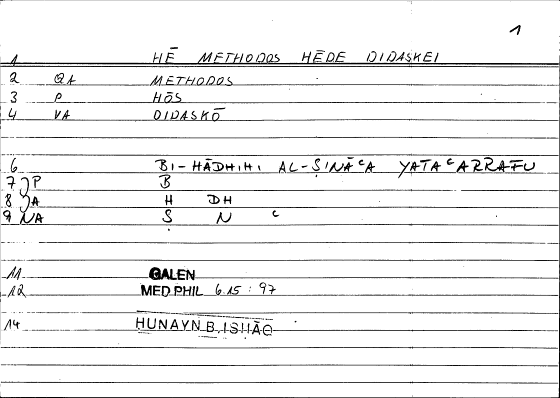 1
1 HĒ METHODOS HĒDE DIDASKEI
2 QA METHODOS
3 P HŌS
4 VA DIDASKŌ
6 BI-HĀDHIHI AL-ṢINĀᶜA YATAᶜARRAFU
7 JP B
8 JA H DH
9 NA Ṣ N ᶜ
11 GALEN
12 MED PHIL 6.15 : 97
14 HUNAYN B. ISHĀQ